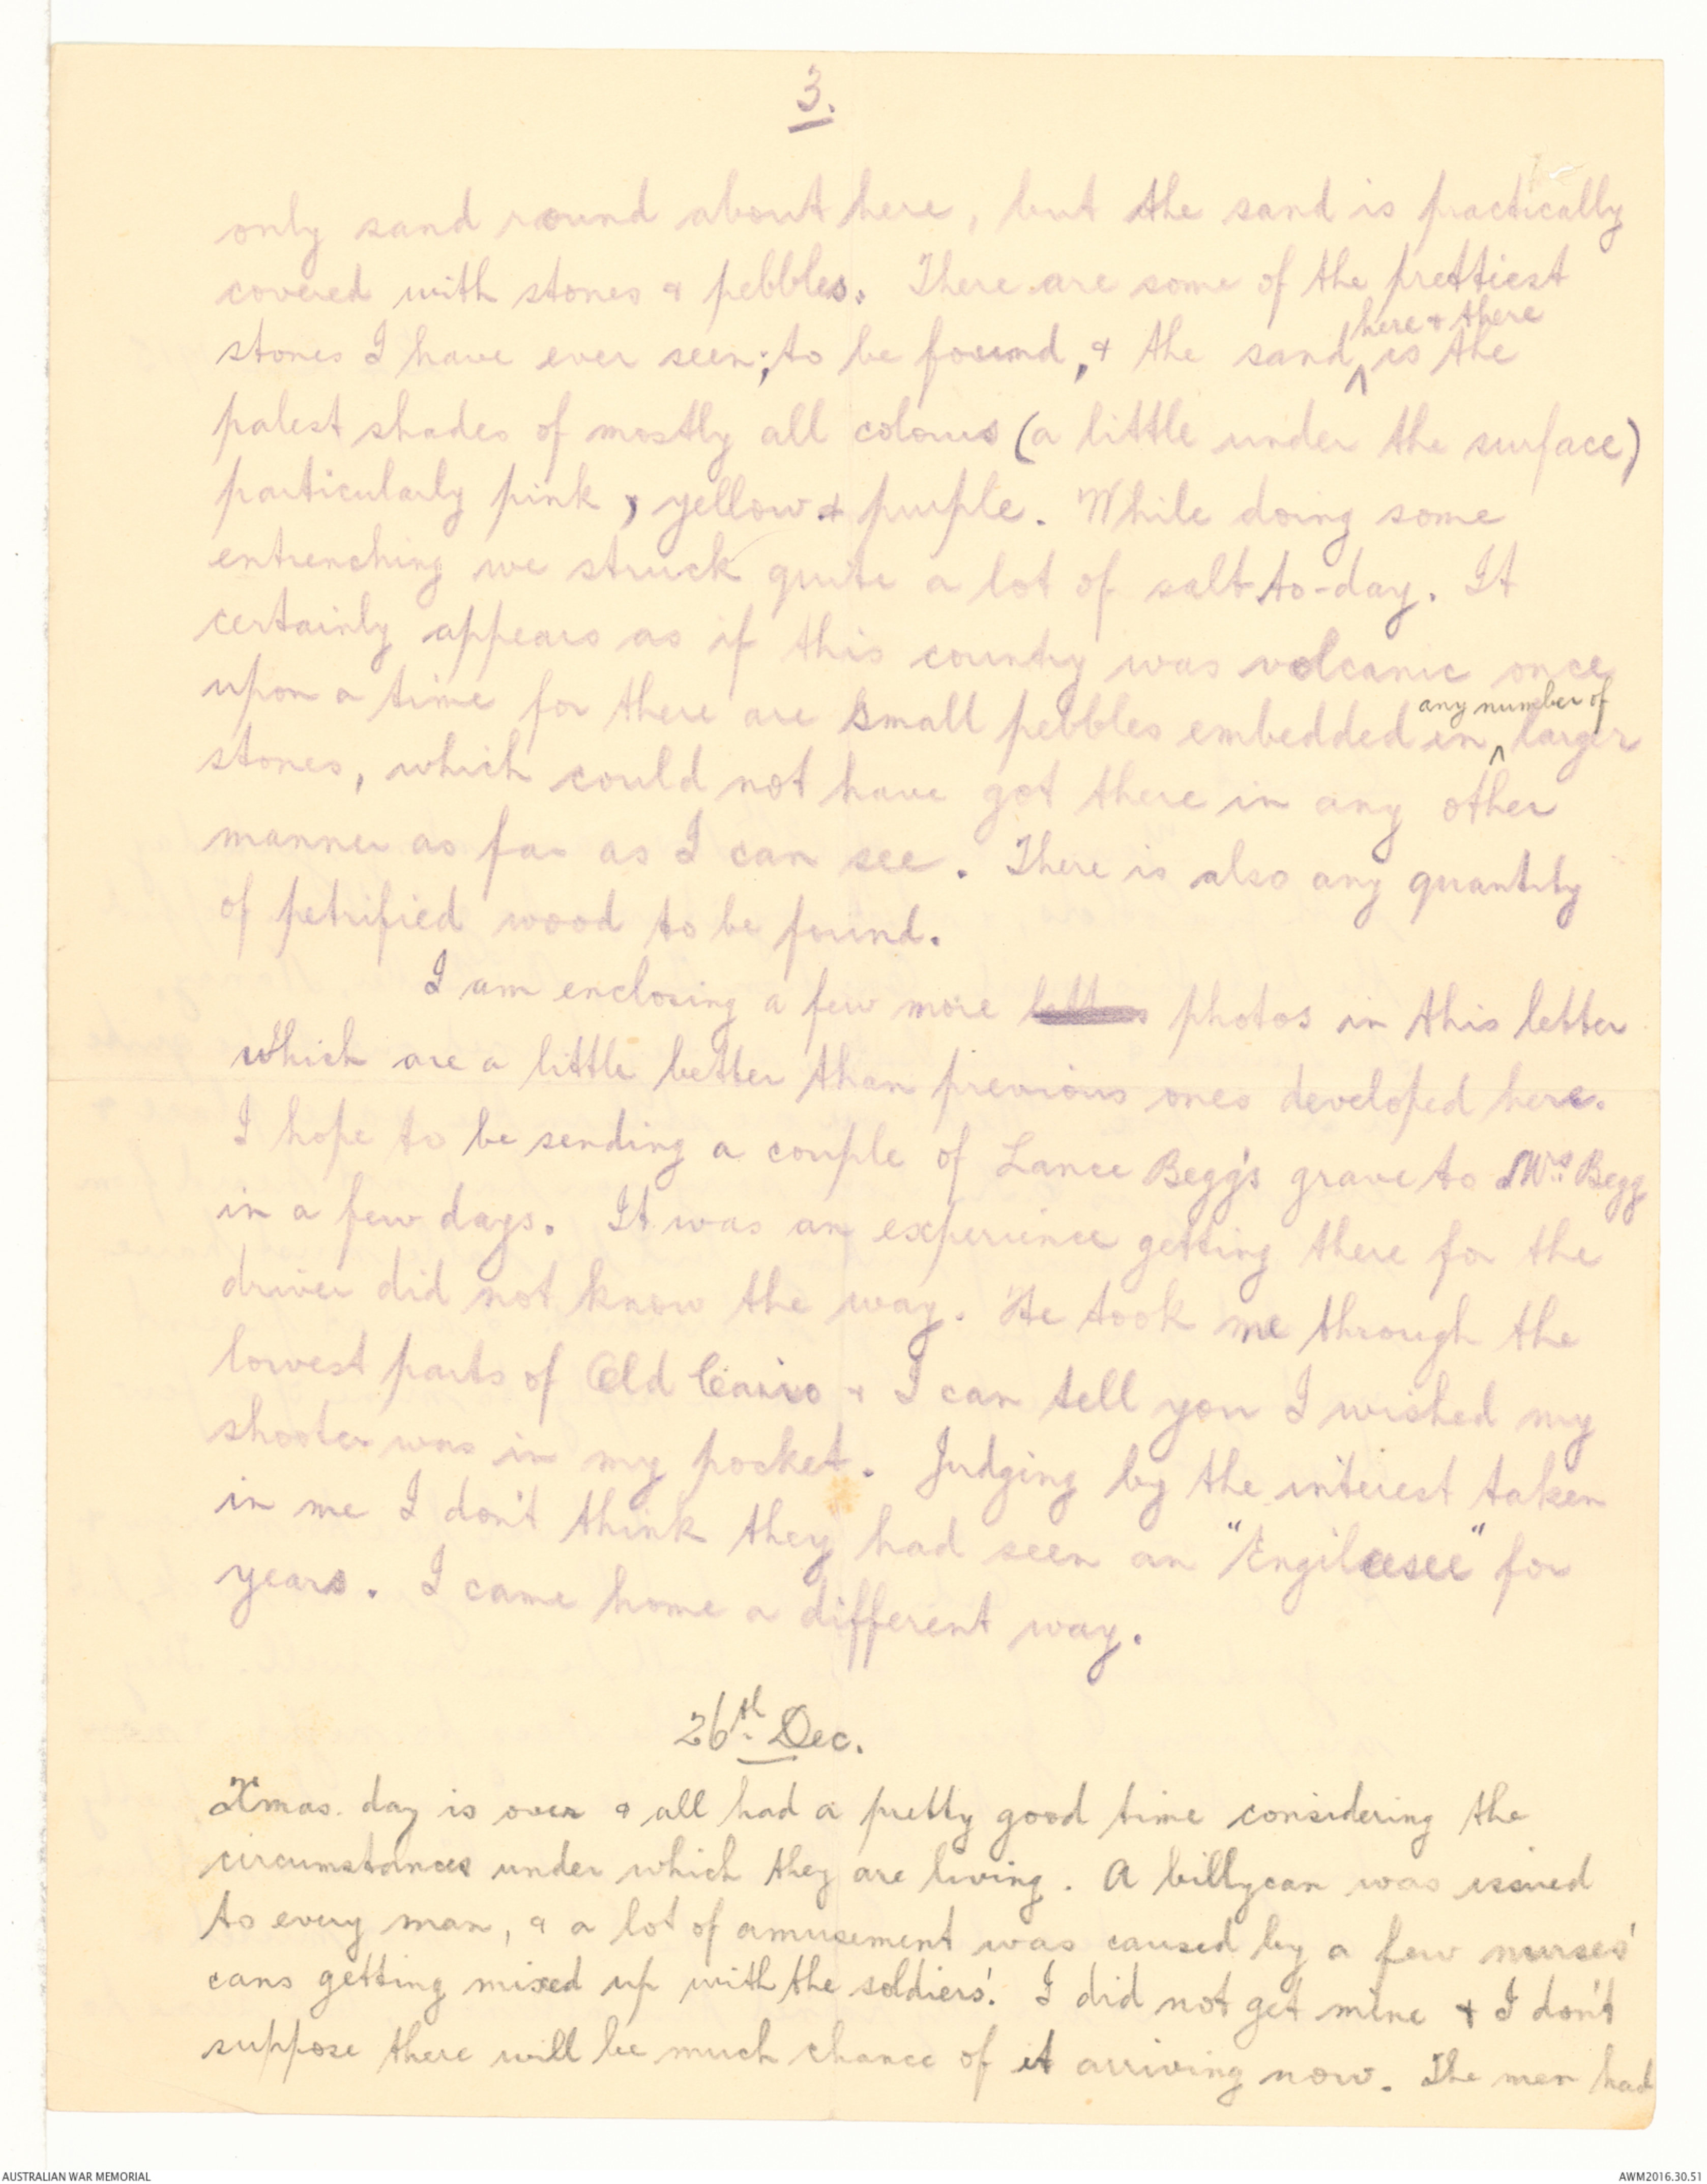 3.
only sand round about here, but the sand is practically
covered with stones & pebbles. There are some of the prettiest
stones I have ever seen; to be found, & the sand here & there is the
palest shades of mostly all colours (a little under the surface)
particularly pink, yellow & purple. While doing some
entrenching we struck quite a lot of salt to-day. It
certainly appears as if this country was volcanic once
upon a time for there are small pebbles embedded in any number of larger
stones, which could not have got there in any other
manner as far as I can see. There is also any quantity
of petrified wood to be found.
I am enclosing a few more photos in this letter
which are a little better than previous ones developed here.
I hope to be sending a couple of Lance Begg's grave to Mrs. Begg
in a few days. It was an experience getting there for the
driver did not know the way. He took me through the
lowest parts of Old Cairo & I can tell you I wished my
shooter was in my pocket. Judging by the interest taken
in me I don't think they had seen an "Engileesee" for
years. I came home a different way.
26th Dec.
Xmas. day is over & all had a pretty good time considering the
circumstances under which they are living. A billycan was issued
to every man, & a lot of amusement was caused by a few nurses'
cans getting mixed up with the soldiers'. I did not get mine & I don't
suppose there will be much chance of it arriving now. The men had
AUSTRALIAN WAR MEMORIAL
AWM2016.30.51